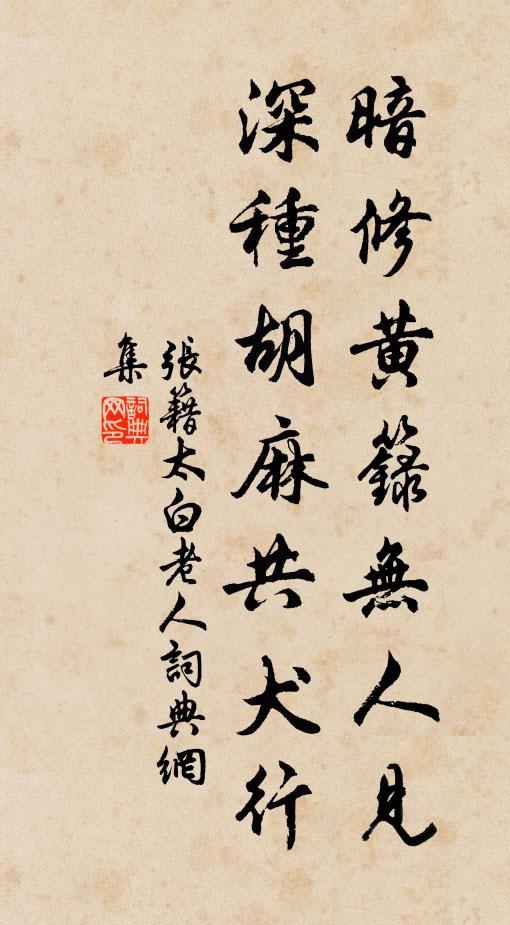 暗修黃籙無人見
深種胡麻共犬行
張籍太白老人詞典網
集
詞典網印